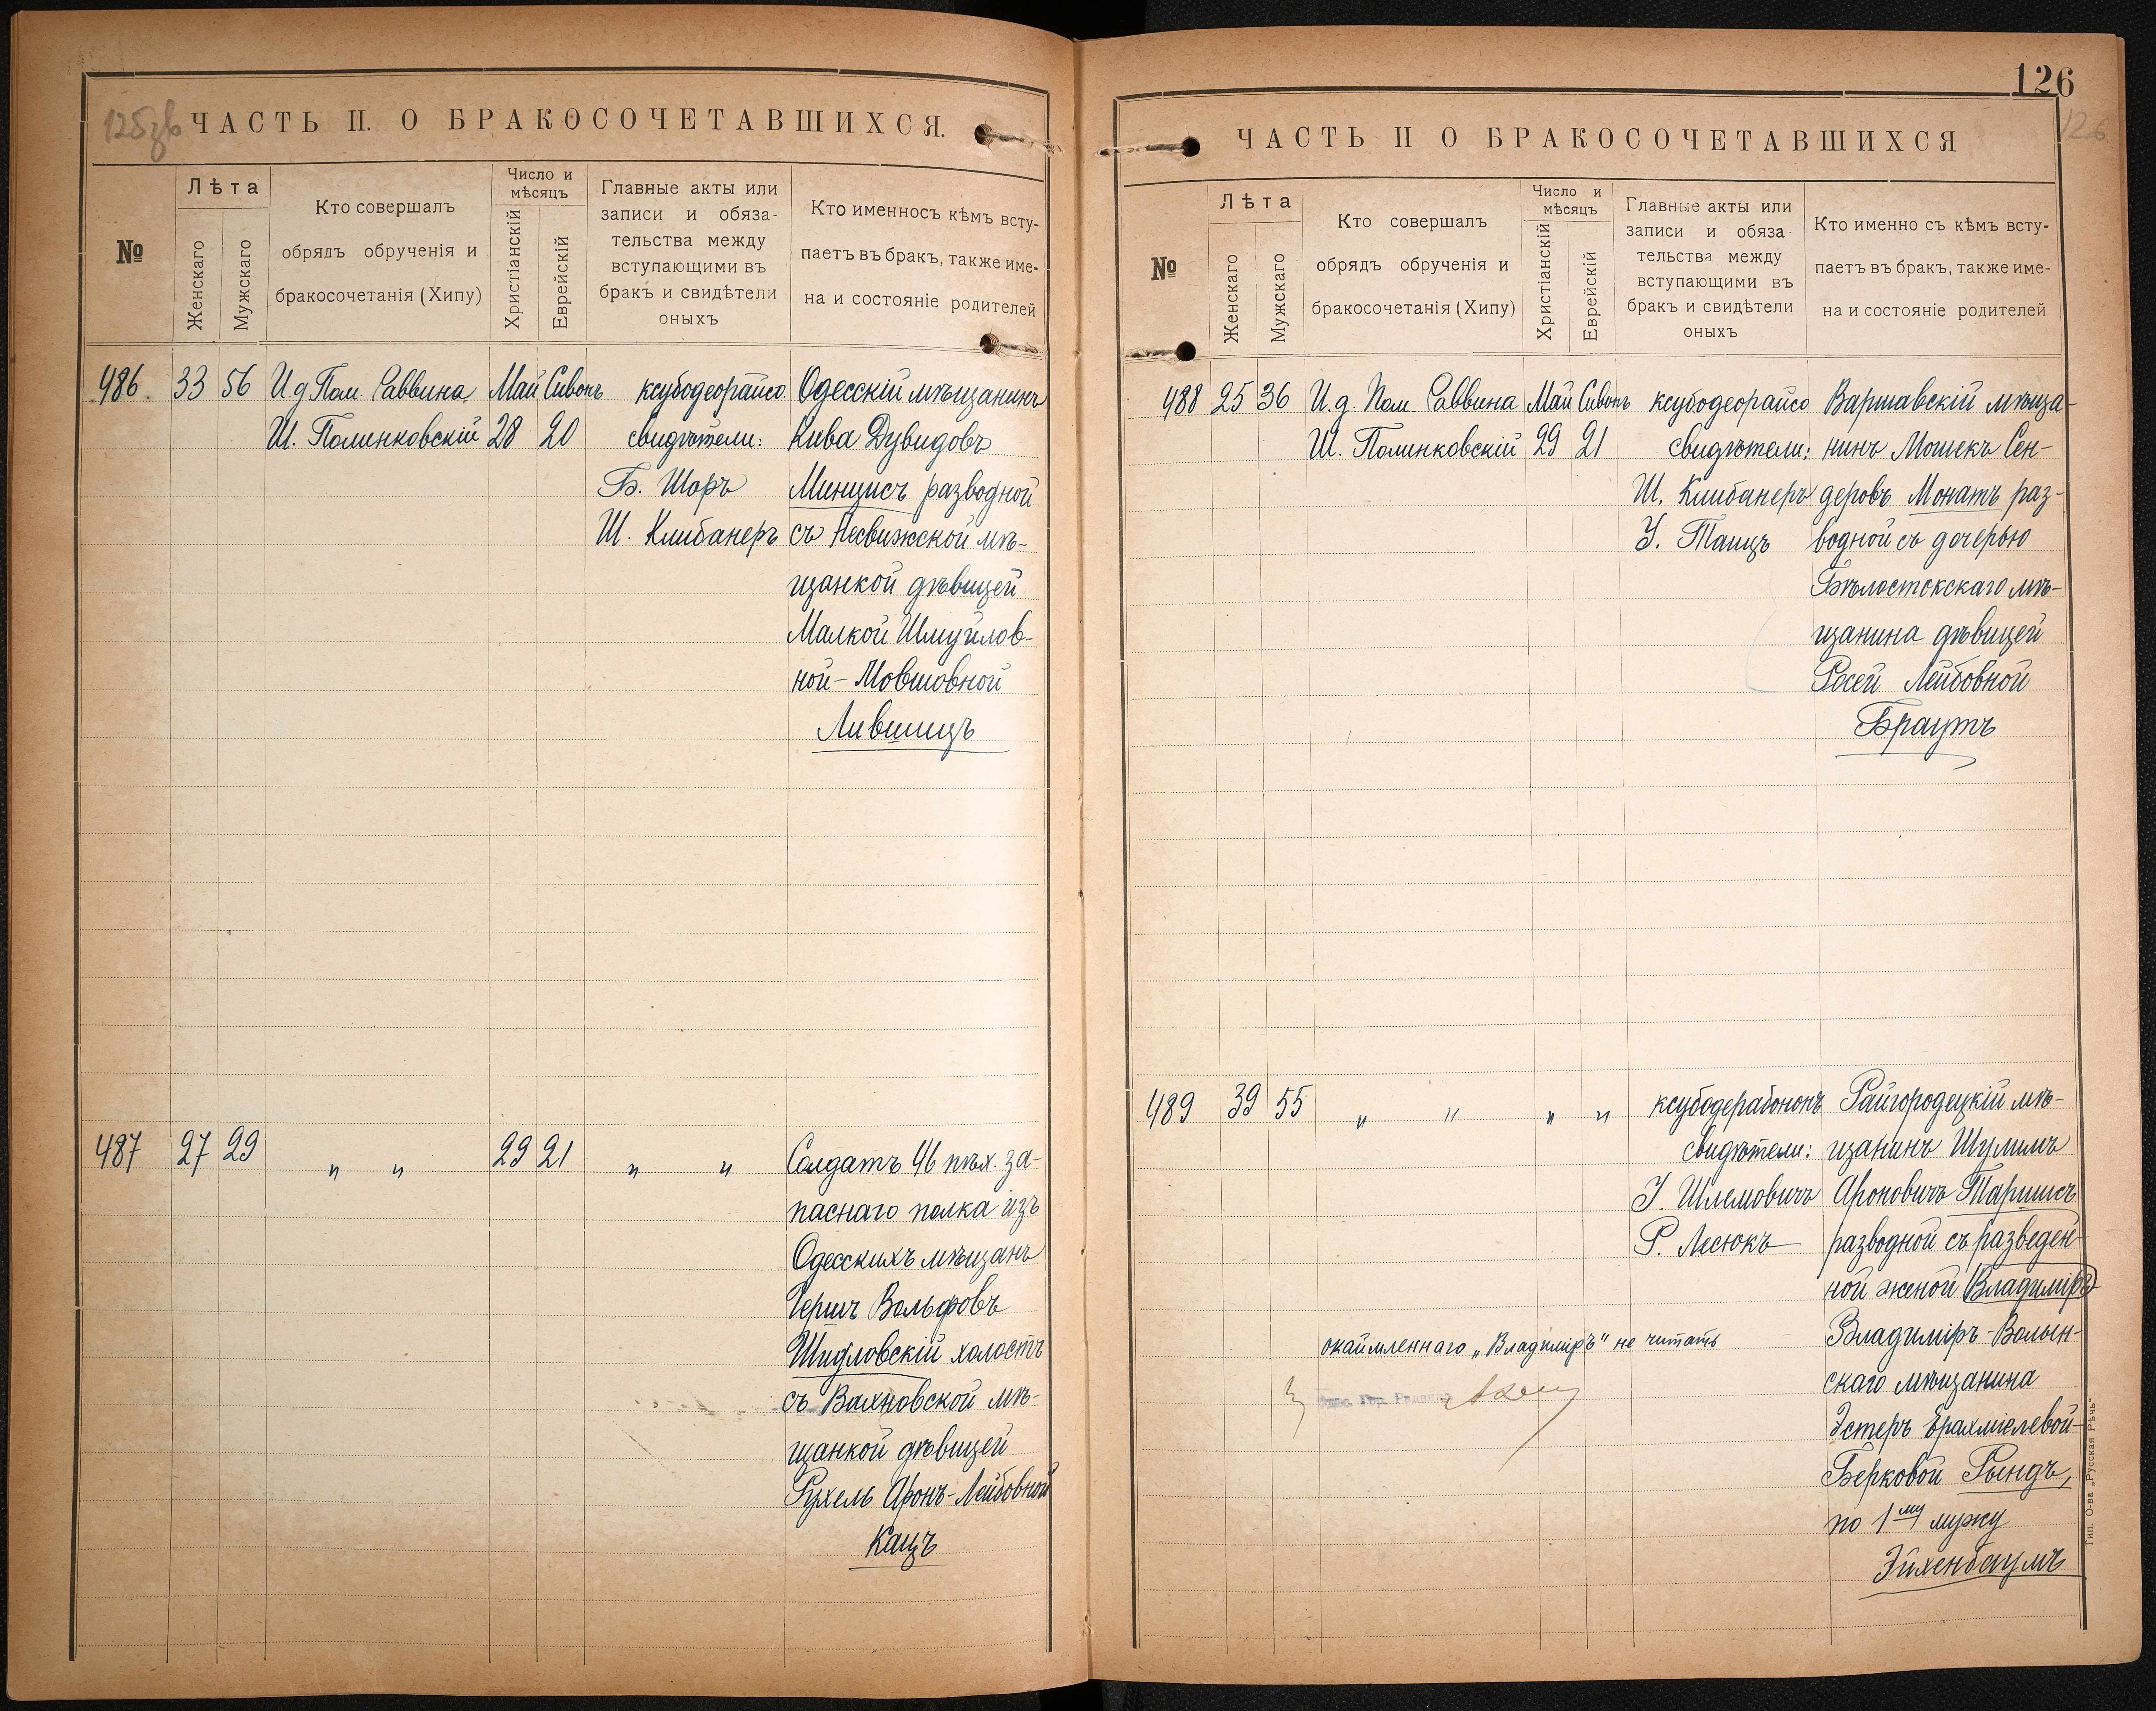 125зв
ЧАСТЬ II. О БРАКОСОЧЕТАВШИХСЯ.
№
Лѣта
Женскаго
Мужскаго
Кто совершалъ
обрядъ обрученія и
бракосочетанія (Хипу)
Число и
мѣсяцъ
Христіанскій
Еврейскій
Главные акты или
записи и обяза-
тельства между
вступающими въ
бракъ и свидѣтели
оныхъ
Кто именносъ кѣмъ всту-
паетъ въ бракъ, также име-
на и состояніе родителей
486. 33 56 И.д Пом. Раввина Май Сивонъ ксубодеорайсо. Одесскій мѣщанинъ
Ш. Полинковскій 28 20 свидѣтели: Кива Дувидовъ
Б. Шоръ Минцисъ разводной
Ш. Клибанеръ съ Несвижской мѣ-
щанкой дѣвицей
Малкой Шмуйлов-
ной-Мовшовной
Лившицъ
487 27 29 " " 29 21 " " Солдатъ 46 пѣх. за-
паснаго полка изъ
Одесскихъ мѣщанъ
Гершъ Вольфовъ
Шидловскій холостъ
съ Вахновской мѣ-
щанкой дѣвицей
Рухель Аронъ-Лейбовной
Кацъ
126
126
ЧАСТЬ II О БРАКОСОЧЕТАВШИХСЯ
№
Лѣта
Женскаго
Мужскаго
Кто совершалъ
обрядъ обрученія и
бракосочетанія (Хипу)
Число и
мѣсяцъ
Христіанскій
Еврейскій
Главные акты или
записи и обяза
тельства между
вступающими въ
бракъ и свидѣтели
оныхъ
Кто именно съ кѣмъ всту-
паетъ въ бракъ, также име-
на и состояніе родителей
488 25 36 И.д. Пом. Раввина Май Сивонъ ксубодеорайсо Варшавскій мѣща-
Ш. Полинковскій 29 21 свидѣтели: нинъ Мошекъ Сен-
Ш. Клибанеръ деровъ Монатъ раз-
У. Танцъ водной съ дочерью
Бѣлостокскаго мѣ-
щанина дѣвицей
Росей Лейбовной
Браутъ
489 39 55 " " " " ксубодерабононъ Райгородецкій мѣ-
свидѣтели: щанинъ Шулимъ
У. Шлемовичъ Ароновичъ Таршисъ
Р. Лесюкъ разводной съ разведен-
ной женой Владиміръ
Владиміръ-Волын-
скаго мѣщанина
Эстеръ Ерахміелевой-
Берковой Рындъ,
по 1му мужу
Эйхенбаумъ
окаймленнаго „Владиміръ“ не читать
Тип. О-ва „Русская Рѣчь“